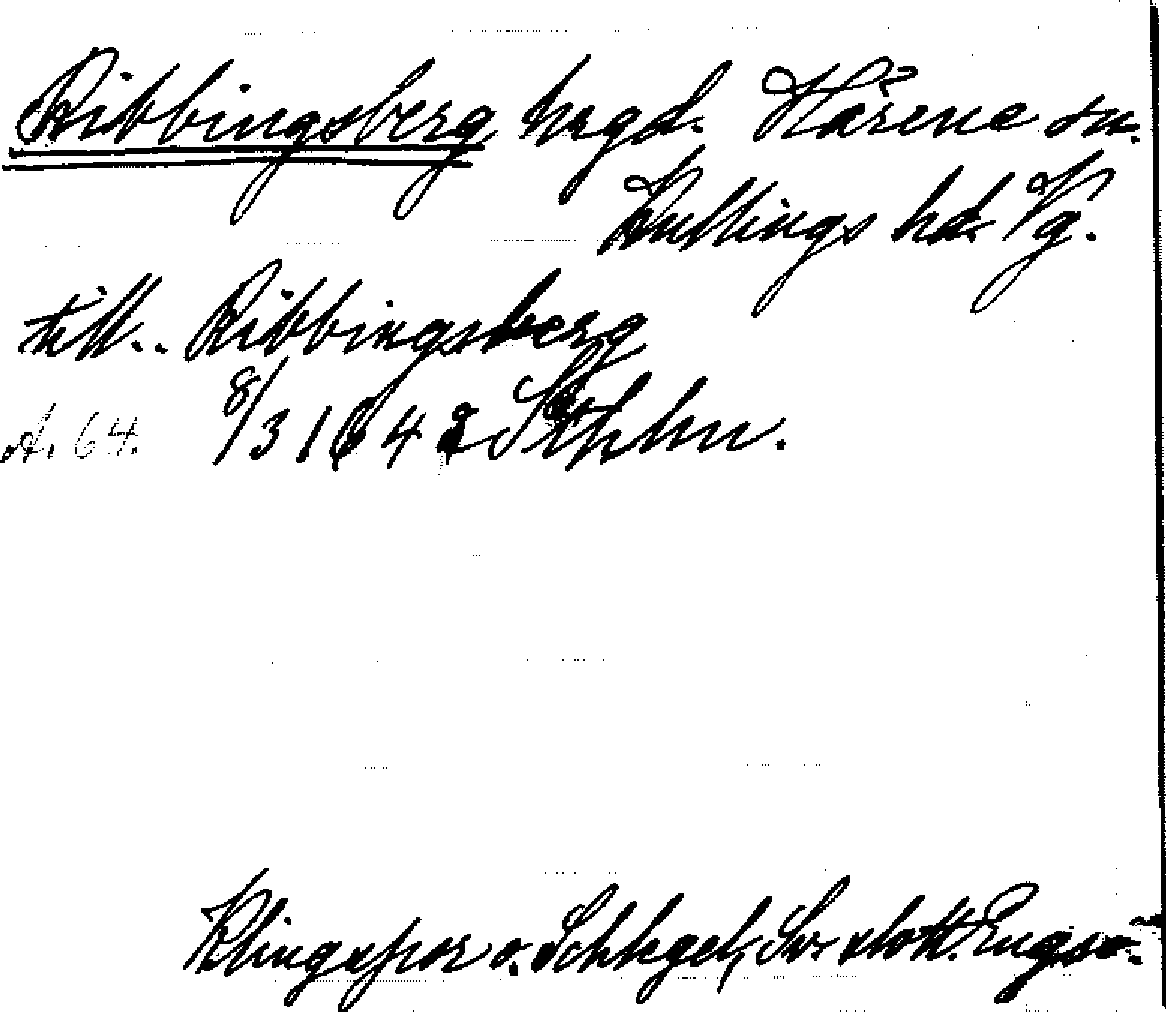 Ribbingsberg, hrgd. Hårene sn.
Kullings hd. Vg.
till.. Ribbingsberg
A. 64. 8/3 1642 Sthlm.
Klingspor o. Schlegel, Sv. slott. Engsö.